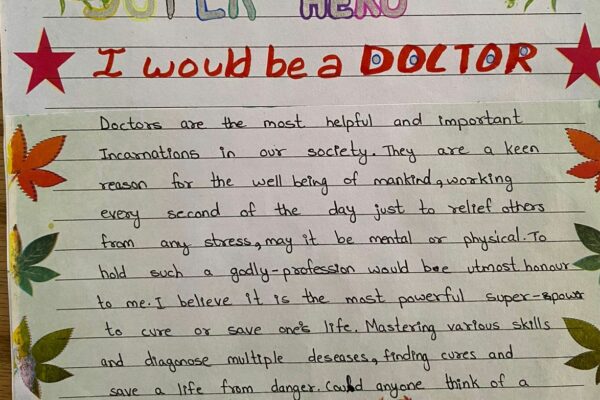 SUPER HERO
I would be a DOCTOR
Doctors are the most helpful and important
Incarnations in our society. They are a keen
reason for the well being of mankind, working
every second of the day just to relief others
from any stress, may it be mental or physical. To
hold such a godly-profession would be utmost honour
to me. I believe it is the most powerful super-spowr
to cure or save one's life. Mastering various skills
and diagonose multiple deseases, finding cures and
save a life from danger. Could anyone think of a